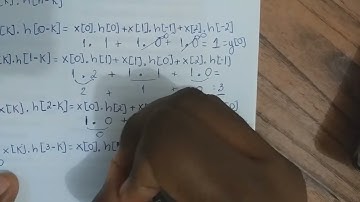 [K].h[0-K] = x[0].h[0]+x[1].h[-1]+x[2].h[-2]
1.1 + 1.0 + 1.0 = 1 = y[0]
[K].h[1-K] = x[0].h[1]+x[1].h[0]+x[2].h[-1]
1.2 + 1.1 + 1.0 =
2 + 1 + :3
x[K].h[2-K] = x[0].h[2]+x
1.0 +
0
x[K].h[3-K] = x[0].h[